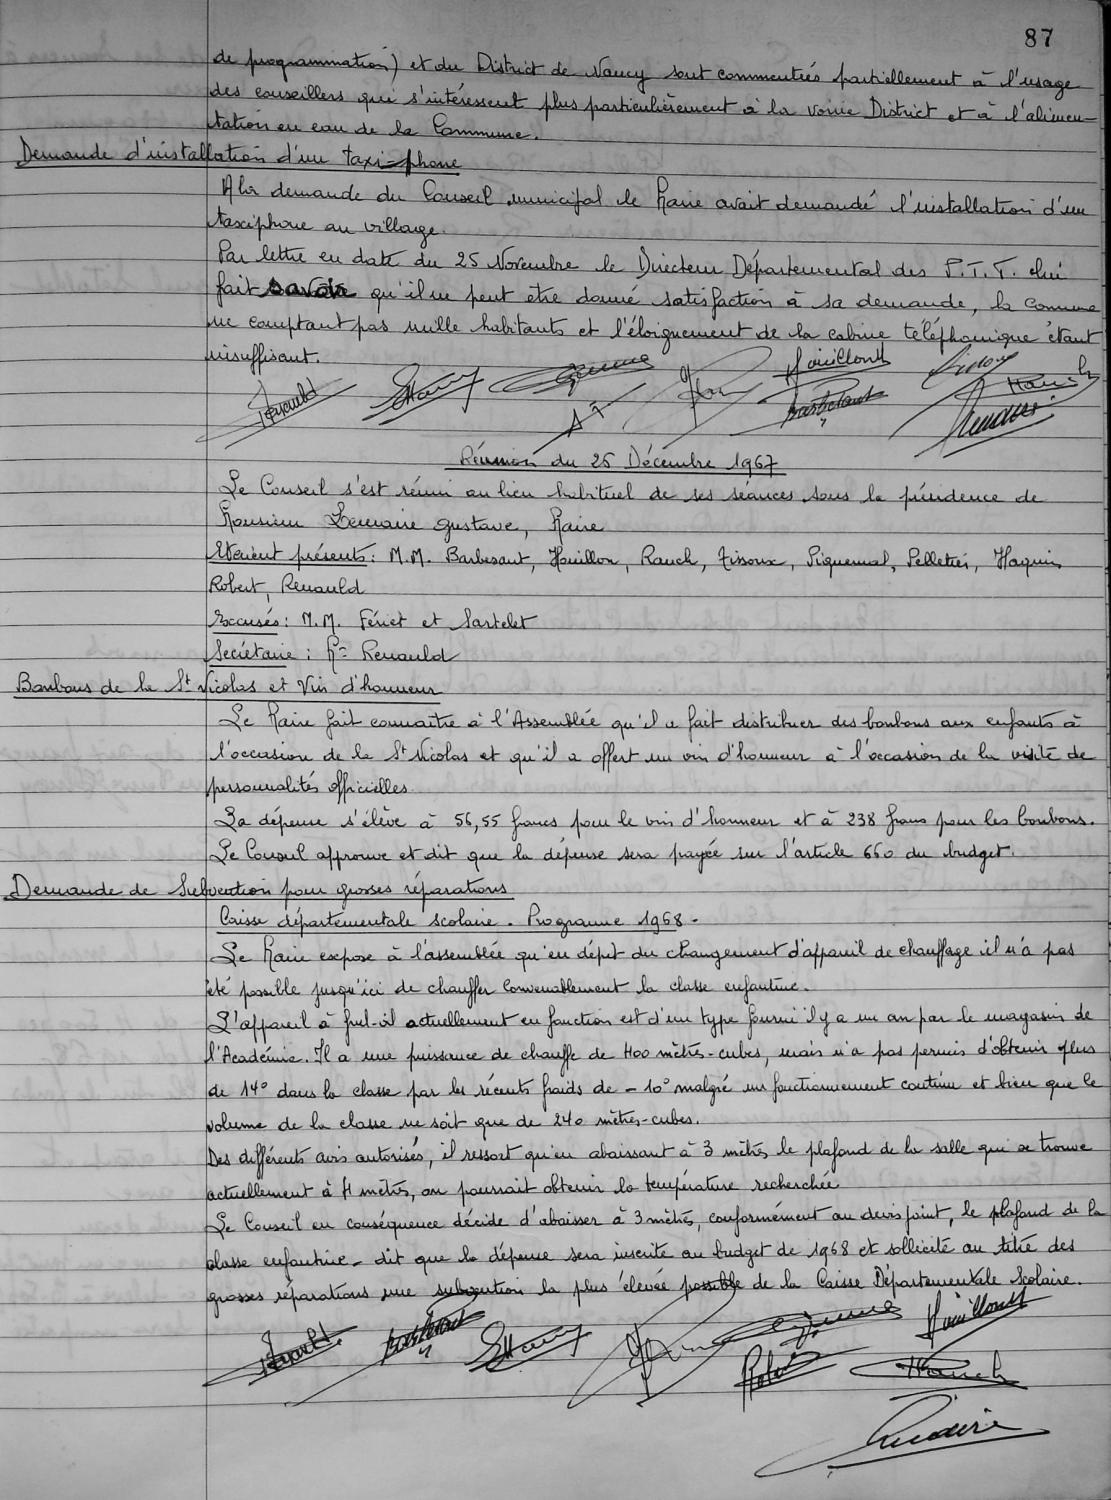 87
de programmation) et du District de Nancy sont commentés partiellement à l'usage
des conseillers qui s'intéressent plus particulièrement à la voirie District et à l'alimen-
tation en eau de la Commune.
Demande d'installation d'un taxi-phone
A la demande du Conseil municipal le Maire avait demandé l'installation d'un
taxiphone au village.
Par lettre en date du 25 Novembre le Directeur Départemental des P.T.T. lui
fait savoir qu'il ne peut être donné satisfaction à sa demande, la commune
ne comptant pas mille habitants et l'éloignement de la cabine téléphonique étant
insuffisant.
Renauld Houillon Barbesant Rauch
Réunion du 26 Décembre 1967
Le Conseil s'est réuni au lieu habituel de ses séances sous la présidence de
Monsieur Lemaire Gustave, Maire
Etaient présents : M.M. Barbesant, Houillon, Rauch, Tissoux, Piquemal, Pelletier, Haquin
Robert, Renauld
Excusés : M.M. Fériet et Sartelet
Secrétaire : Mr Renauld
Bonbons de la St Nicolas et Vin d'honneur
Le Maire fait connaître à l'Assemblée qu'il a fait distribuer des bonbons aux enfants à
l'occasion de la St Nicolas et qu'il a offert un vin d'honneur à l'occasion de la visite de
personnalités officielles.
La dépense s'élève à 56,55 francs pour le vin d'honneur et à 238 francs pour les bonbons.
Le Conseil approuve et dit que la dépense sera payée sur l'article 660 du budget.
Demande de Subvention pour grosses réparations
Caisse départementale scolaire. Programme 1968 -
Le Maire expose à l'assemblée qu'en dépit du changement d'appareil de chauffage il n'a pas
été possible jusqu'ici de chauffer convenablement la classe enfantine.
L'appareil à fuel-oil actuellement en fonction est d'un type fourni il y a un an par le magasin de
l'Académie. Il a une puissance de chauffe de 400 mètres-cubes, mais n'a pas permis d'obtenir plus
de 14° dans la classe par les récents froids de -10° malgré un fonctionnement continu et bien que le
volume de la classe ne soit que de 240 mètres-cubes.
Des différents avis autorisés, il ressort qu'en abaissant à 3 mètres le plafond de la salle qui se trouve
actuellement à 4 mètres, on pourrait obtenir la température recherchée
Le Conseil en conséquence décide d'abaisser à 3 mètres, conformément au devis joint, le plafond de la
classe enfantine - dit que la dépense sera inscrite au budget de 1968 et sollicite au titre des
grosses réparations une subvention la plus élevée possible de la Caisse Départementale Scolaire.
Renauld Barbesant Houillon
Robert Rauch
Lemaire